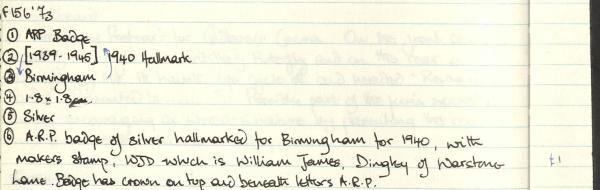 F156'73
① ARP Badge
② [1939-1945] 1940 Hallmark
③ Birmingham
④ 1.8 x 1.8cm.
⑤ Silver
⑥ A.R.P. badge of silver hallmarked for Birmingham for 1940, with
makers stamp, WJD which is William James, Dingley of Warstone
Lane. Badge has crown on top and beneath letters A.R.P.
£1